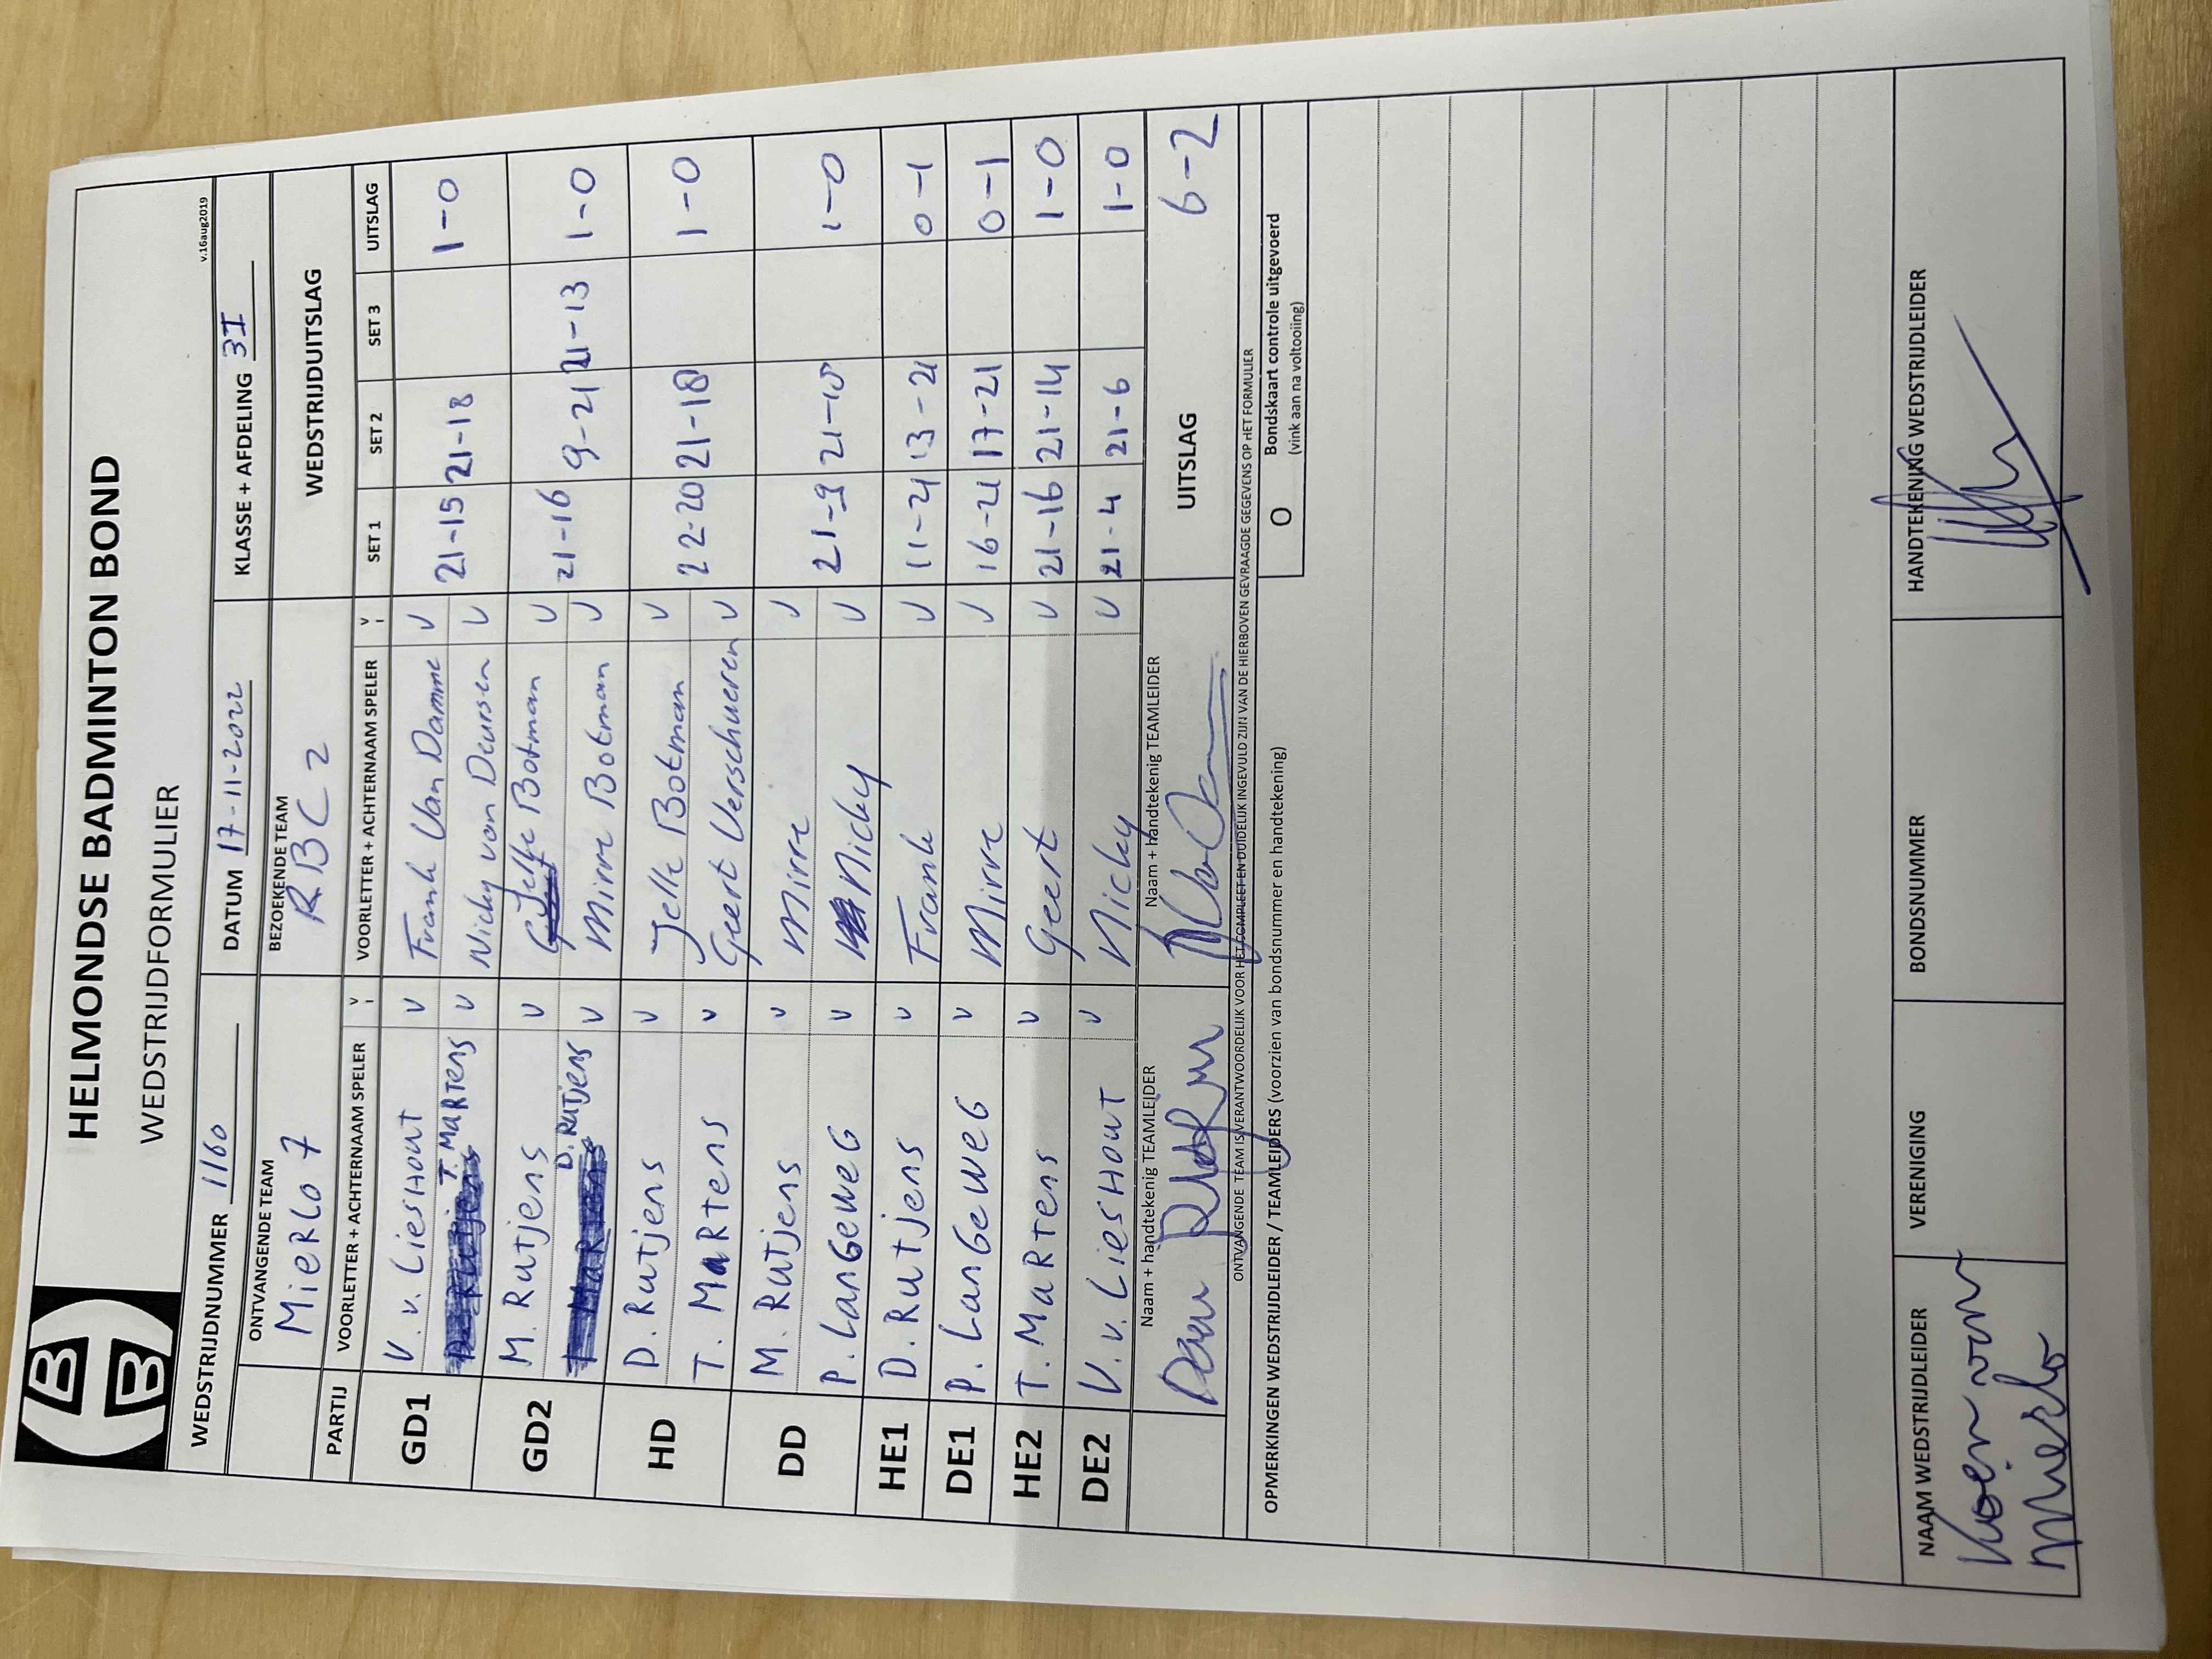 HELMONDSE BADMINTON BOND
WEDSTRIJDFORMULIER
v.16aug2019
WEDSTRIJDNUMMER 1160 DATUM 17-11-2022 KLASSE + AFDELING 3I
ONTVANGENDE TEAM BEZOEKENDE TEAM WEDSTRIJDUITSLAG
MieRLo 7 RBC 2
PARTIJ VOORLETTER + ACHTERNAAM SPELER V VOORLETTER + ACHTERNAAM SPELER V SET 1 SET 2 SET 3 UITSLAG
GD1 V. v. LiesHout V Frank Van Damme V 21-15 21-18 1-0
T. MaRTens V Nicky van Deursen V
GD2 M. Rutjens V Jelle Botman V 21-16 9-21 21-13 1-0
D. Rutjens V Mirre Botman V
HD D. Rutjens V Jelle Botman V 22-20 21-18 1-0
T. MaRtens V Geert Verschueren V
DD M. Rutjens V Mirre V 21-9 21-18 1-0
P. LanGeweG V Nicky V
HE1 D. Rutjens V Frank V 11-21 13-21 0-1
DE1 P. LanGeweG V Mirre V 16-21 17-21 0-1
HE2 T. MaRtens V Geert V 21-16 21-14 1-0
DE2 V. v. LiesHout V Nicky V 21-4 21-6 1-0
Naam + handtekenig TEAMLEIDER Naam + handtekenig TEAMLEIDER UITSLAG 6-2
ONTVANGENDE TEAM IS VERANTWOORDELIJK VOOR HET COMPLEET EN DUIDELIJK INGEVULD ZIJN VAN DE HIERBOVEN GEVRAAGDE GEGEVENS OP HET FORMULIER
OPMERKINGEN WEDSTRIJDLEIDER / TEAMLEIDERS (voorzien van bondsnummer en handtekening)
O Bondskaart controle uitgevoerd
(vink aan na voltooiing)
NAAM WEDSTRIJDLEIDER VERENIGING BONDSNUMMER HANDTEKENING WEDSTRIJDLEIDER
Koen van
Mierlo